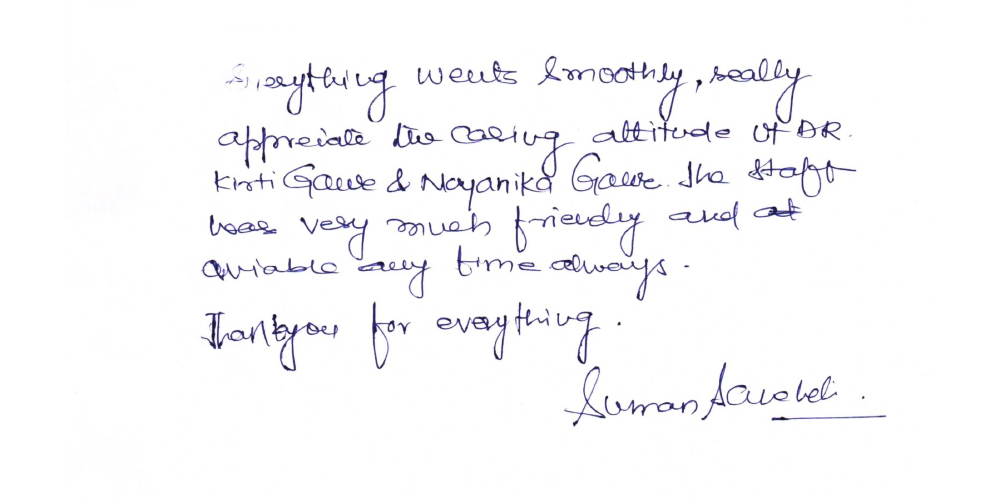 Everything wents smoothly, really
appreciate the caring attitude of DR.
Kirti Gawe & Nayanika Gawe. The staff
was very much friendly and
aviable any time always.
Thankyou for everything.
Suman